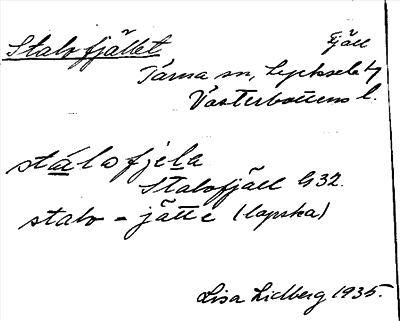 Stalofjället Fjäll
Tärna sn, Lycksele tg
Västerbottens l.
stálofjela
Stalofjäll G32.
stalo - jätte (lapska)
Lisa Lidberg 1935.